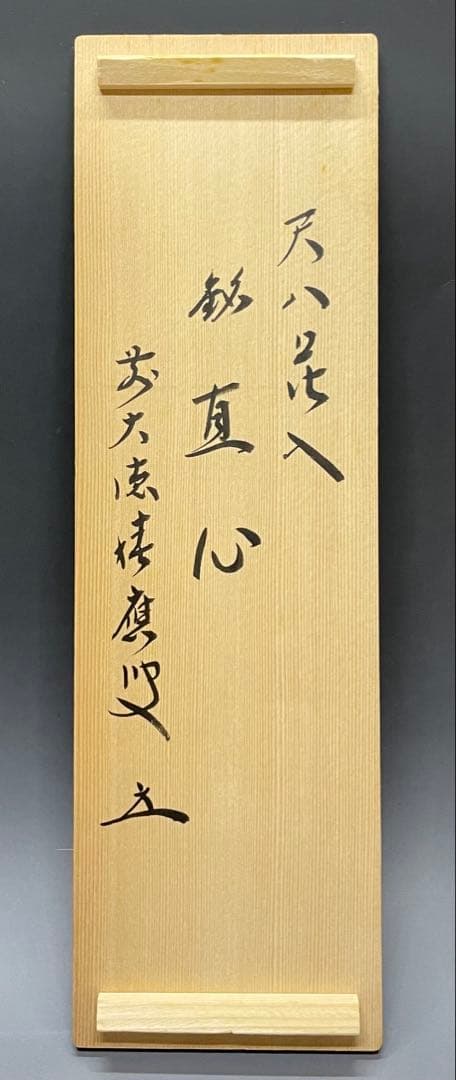 尺八花入
銘 直心
前大徳晴應叟